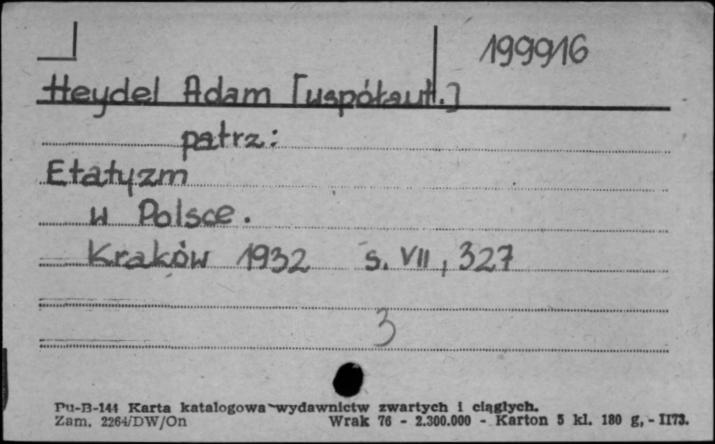 199916
Heydel Adam [współaut.]
patrz:
Etatyzm
w Polsce.
Kraków 1932 s. VII, 327
3
Pu-B-144 Karta katalogowa wydawnictw zwartych i ciągłych.
Zam. 2264/DW/On Wrak 76 - 2.300.000 - Karton 5 kl. 180 g, - II73.